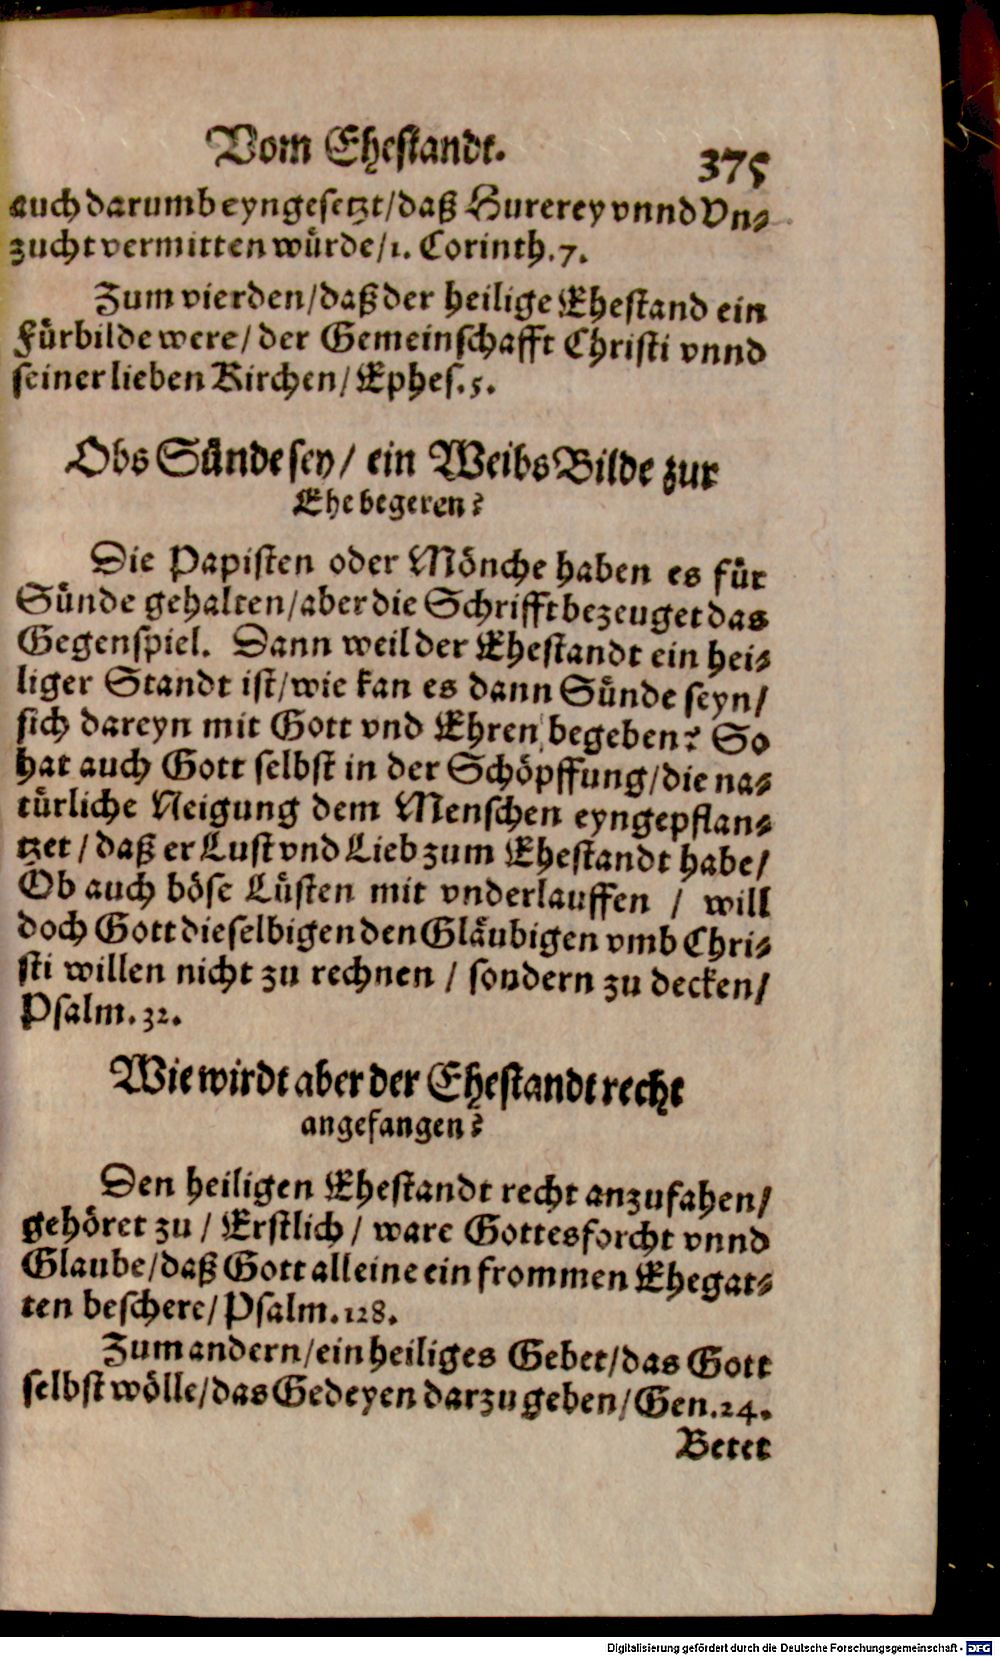 Vom Ehestandt. 375
auch darumb eyngesetzt/daß Hurerey vnnd Vn⸗
zucht vermitten würde/1. Corinth.7.
Zum vierden/daß der heilige Ehestand ein
Fürbilde were/der Gemeinschafft Christi vnnd
seiner lieben Kirchen/Ephes.5.
Obs Sünde sey/ein Weibs Bilde zur
Ehe begeren?
Die Papisten oder Mönche haben es für
Sünde gehalten/aber die Schrifft bezeuget das
Gegenspiel. Dann weil der Ehestandt ein hei⸗
liger Standt ist/wie kan es dann Sünde seyn/
sich dareyn mit Gott vnd Ehren begeben? So
hat auch Gott selbst in der Schöpffung/die na⸗
türliche Neigung dem Menschen eyngepflan⸗
tzet/daß er Lust vnd Lieb zum Ehestandt habe/
Ob auch böse Lüsten mit vnderlauffen / will
doch Gott dieselbigen den Gläubigen vmb Chri⸗
sti willen nicht zu rechnen / sondern zu decken/
Psalm.32.
Wie wirdt aber der Ehestandt recht
angefangen?
Den heiligen Ehestandt recht anzufahen/
gehöret zu / Erstlich / ware Gottesforcht vnnd
Glaube/daß Gott alleine ein frommen Ehegat⸗
ten beschere/Psalm.128.
Zum andern/ein heiliges Gebet/das Gott
selbst wölle/das Gedeyen darzu geben/Gen.24.
Betet
Digitalisierung gefördert durch die Deutsche Forschungsgemeinschaft - DFG